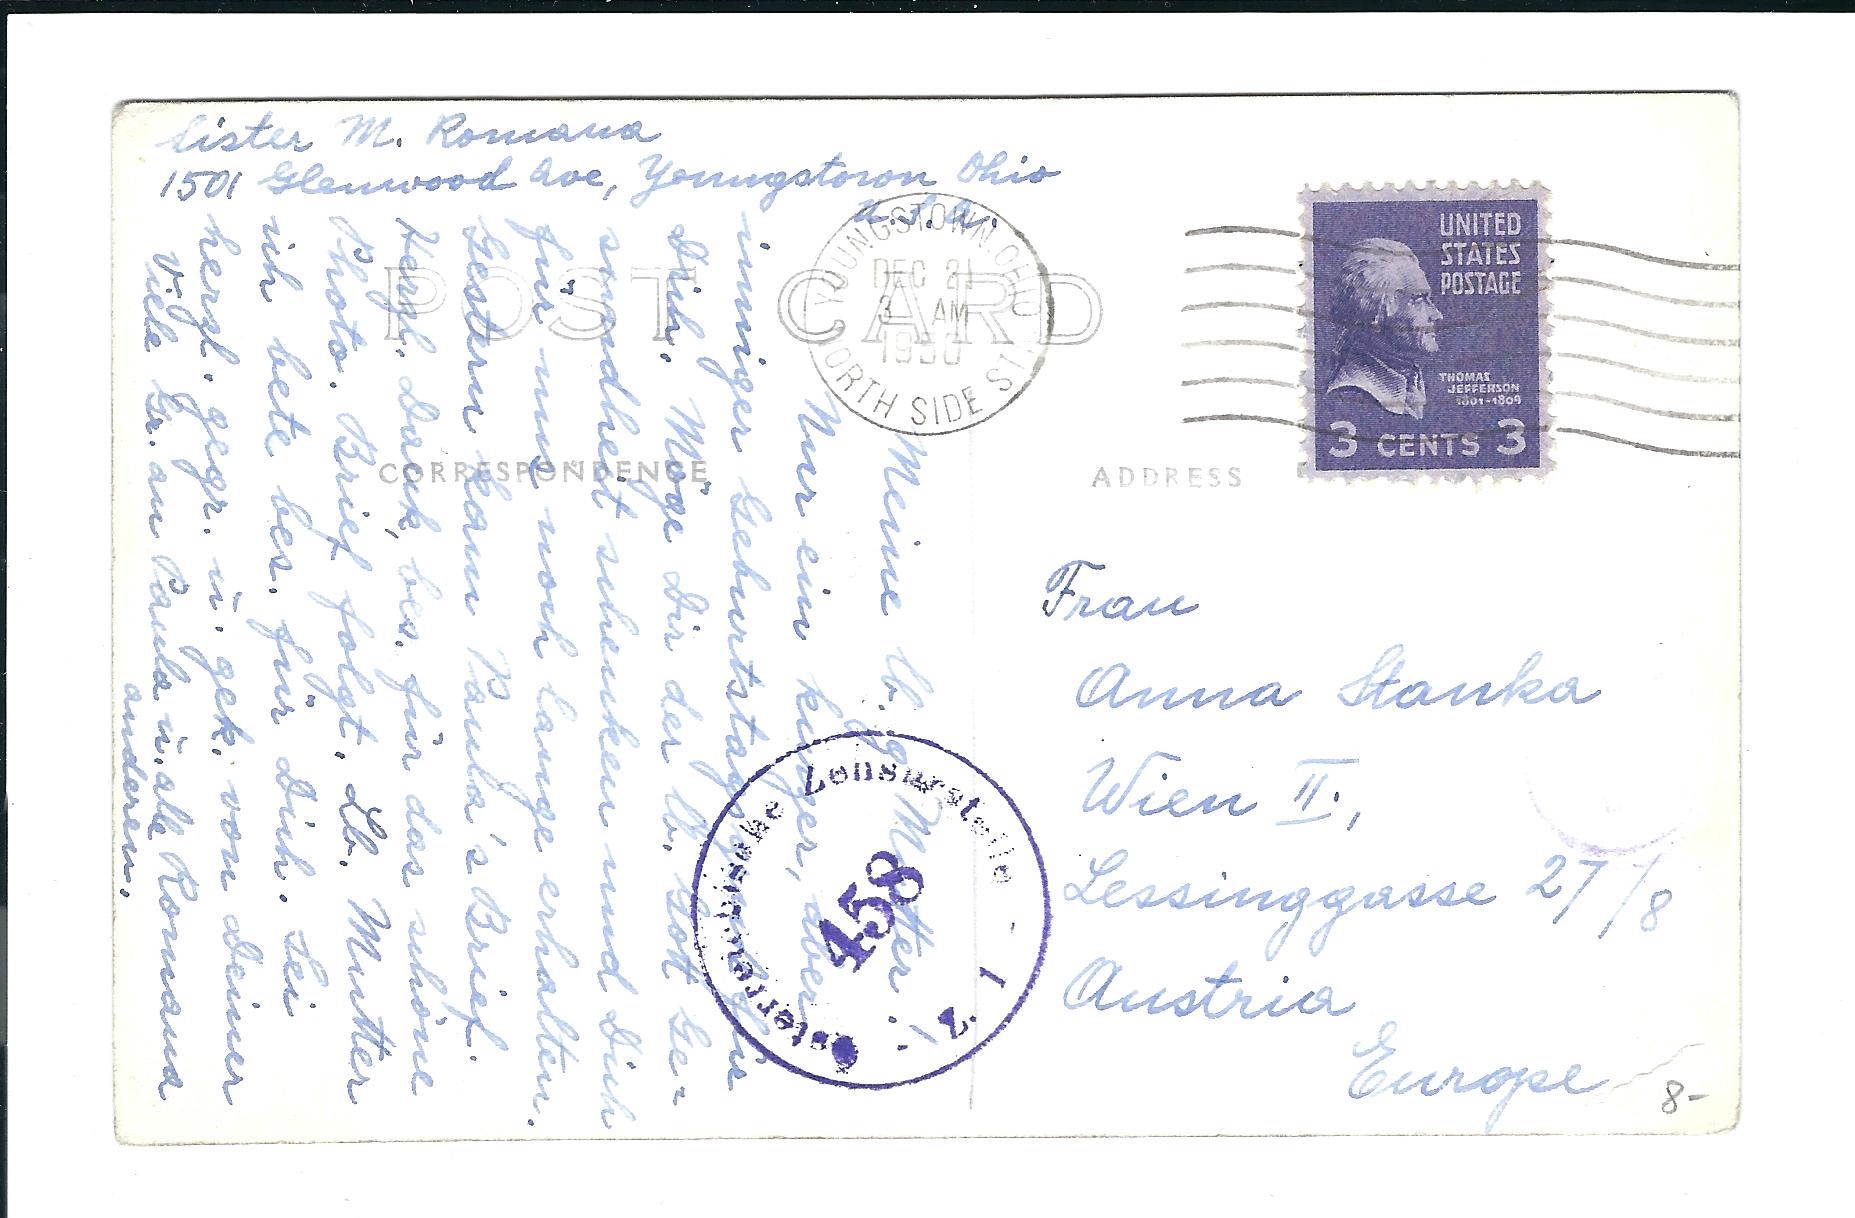 Sister M. Romana
1501 Glenwood Ave, Youngstown Ohio
U.S.A.
POST CARD
YOUNGSTOWN, OHIO
DEC 21
3 AM
1950
NORTH SIDE STA.
UNITED
STATES
POSTAGE
THOMAS
JEFFERSON
1801-1809
3 CENTS 3
CORRESPONDENCE
ADDRESS
Meine lb. g. Mutter!
Nur ein kurzer, aber
inniger Geburtstagsgruß für
Dich. Möge Dir der lb. Gott Ge-
sundheit schenken und Dich
für uns noch lange erhalten.
Gestern kam Paula's Brief.
Herzl. Dank, bes. für das schöne
Photo. Brief folgt. Lb. Mutter
ich bete bes. für Dich. Sei
herzl. gegr. u. gek. von Deiner
Romana
Viele Gr. an Paula u. alle
anderen.
Österreichische Zensurstelle
458
Z. 1
Frau
Anna Stanka
Wien II.,
Lessinggasse 27/8
Austria
Europe
8-